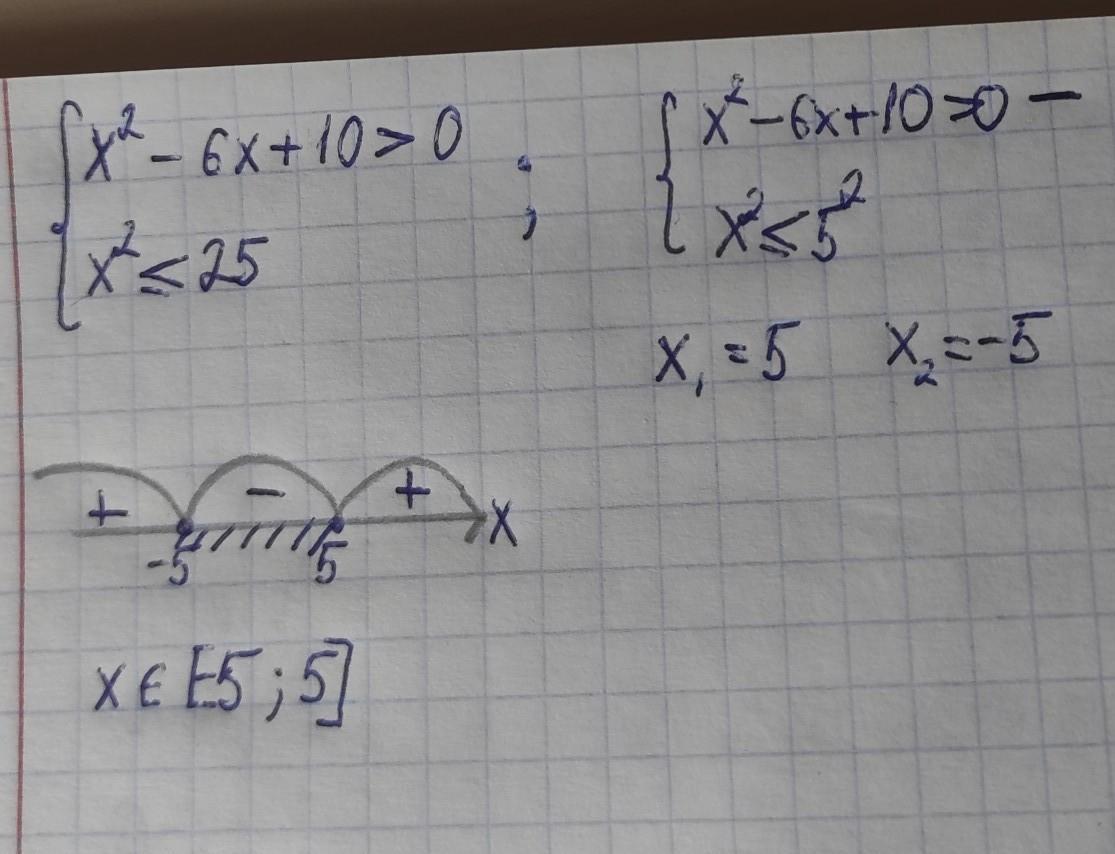 x² - 6x + 10 > 0 ;
x² ≤ 25
x² - 6x + 10 = 0 —
x² ≤ 5²
x₁ = 5 x₂ = -5
+ - + x
-5 5
x ∈ [-5 ; 5]